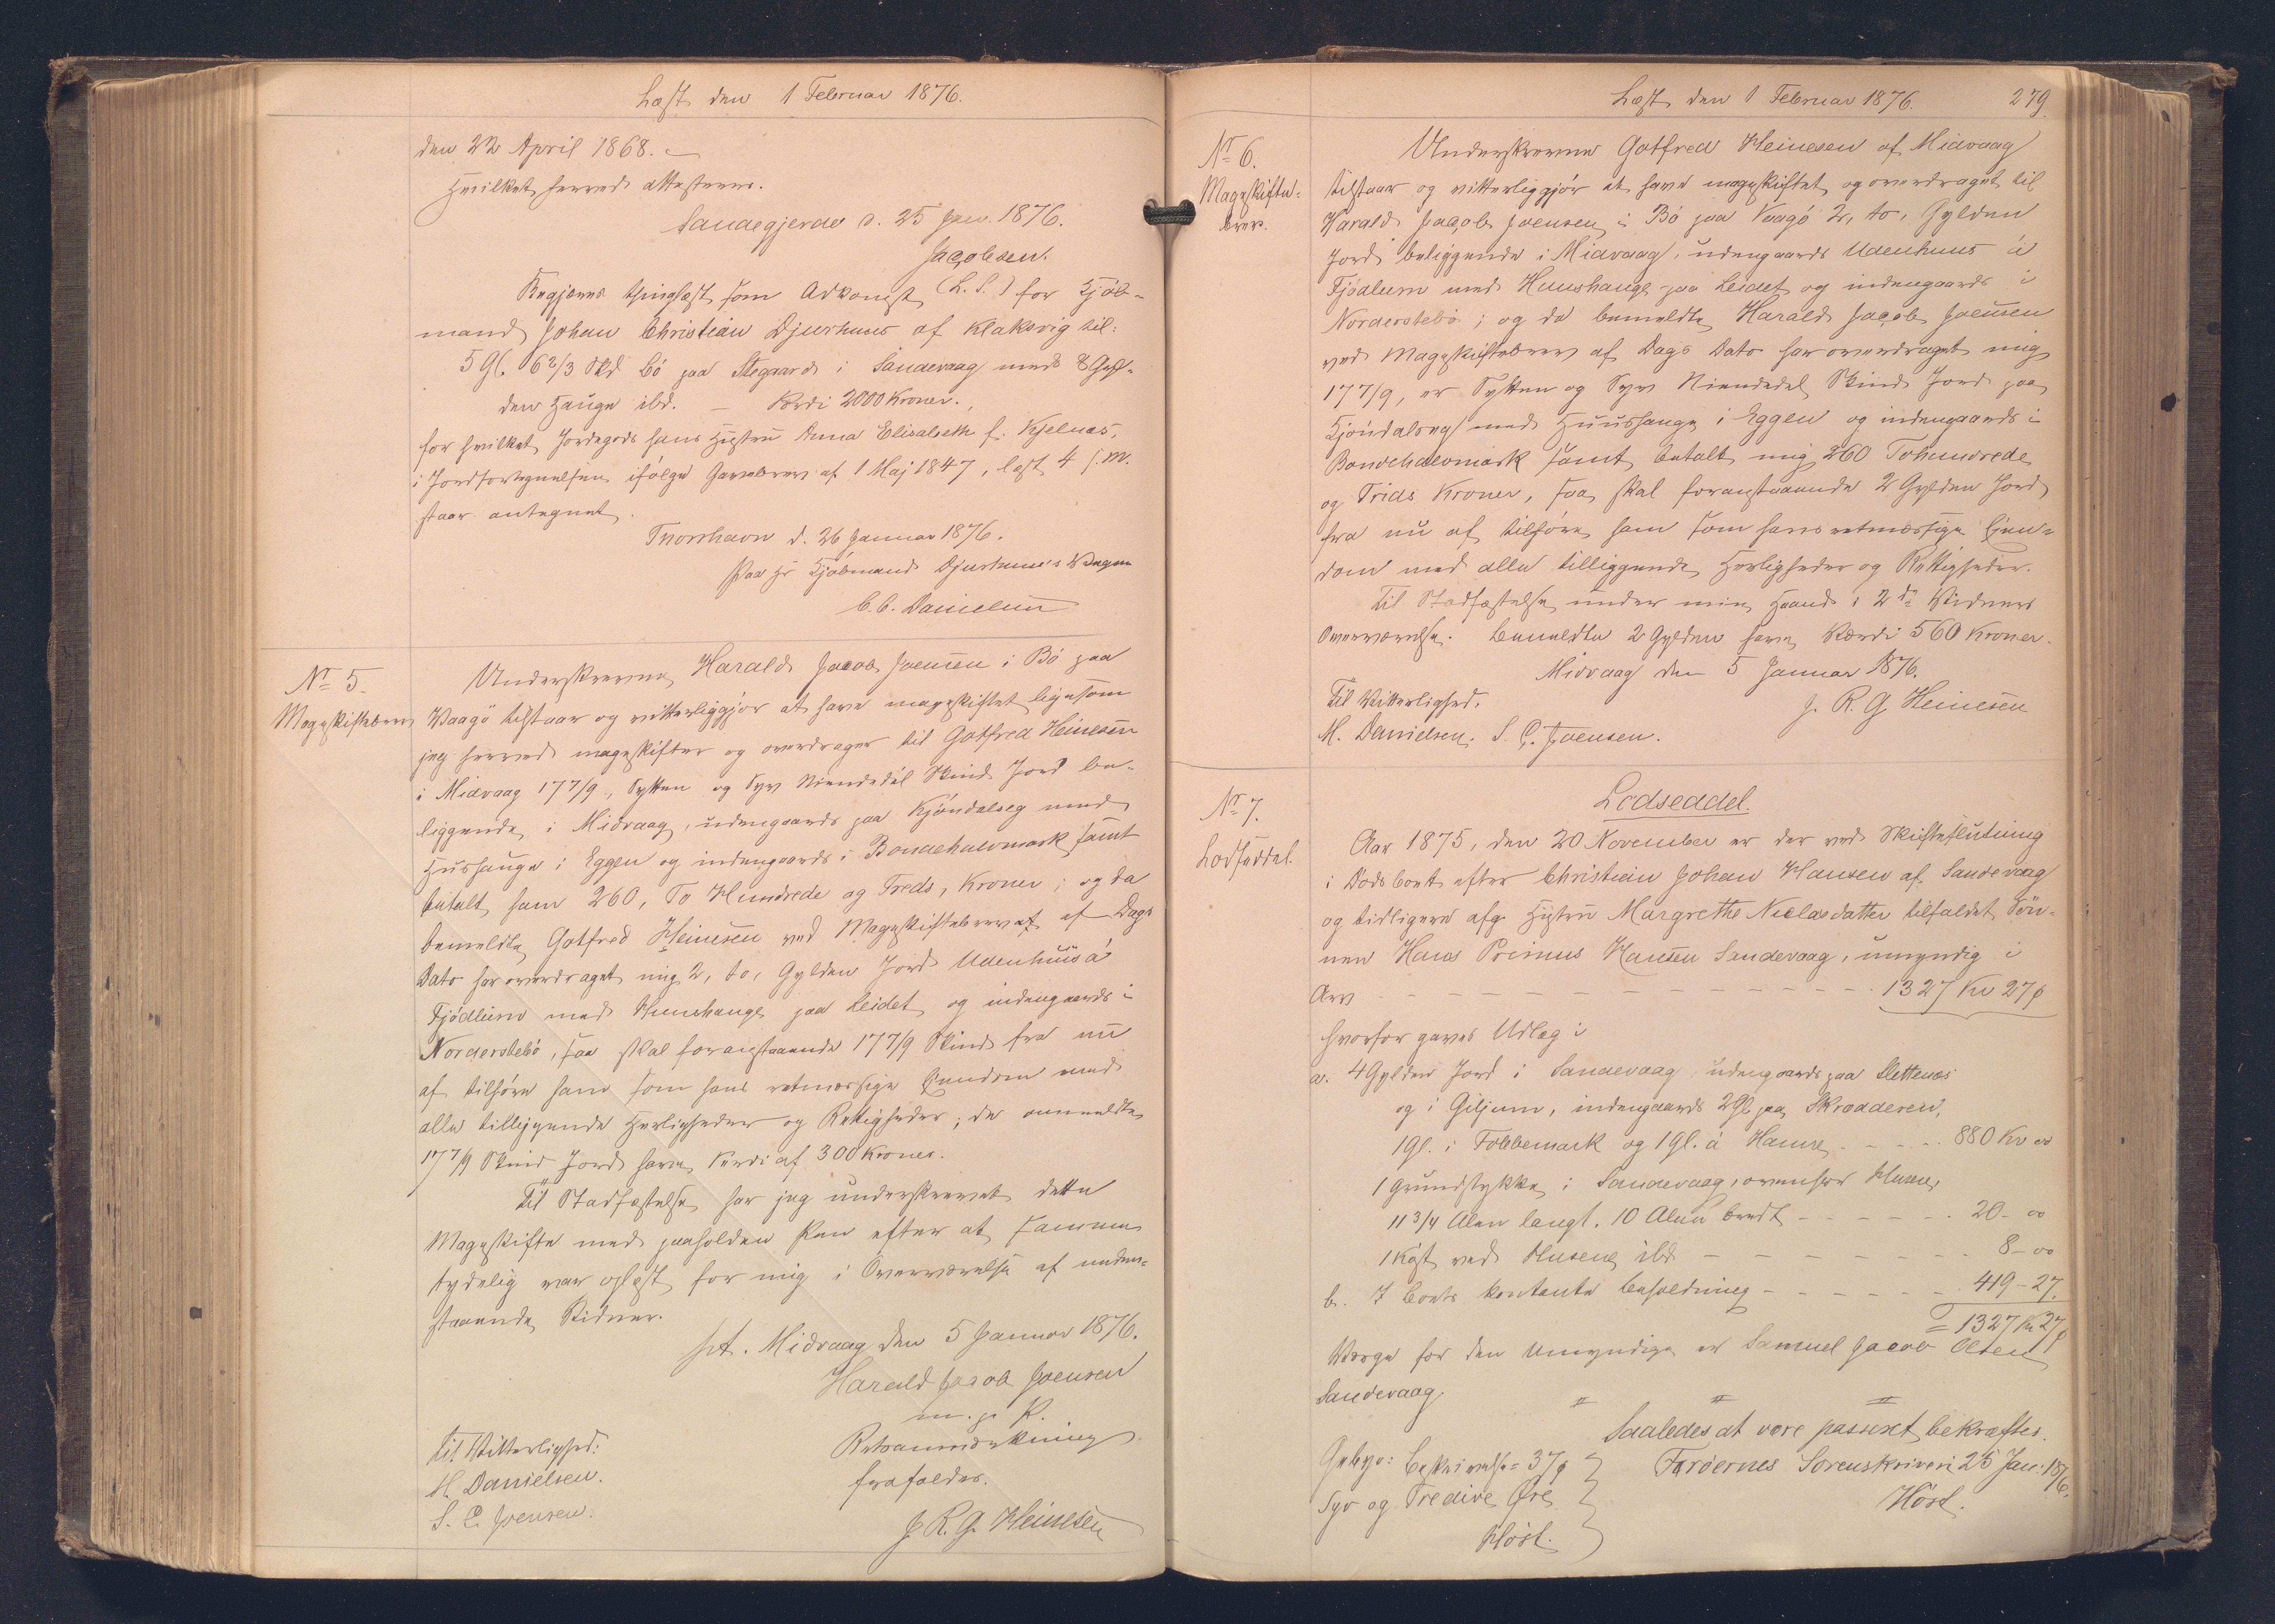 Læst den 1 Februar 1876.
den 22 April 1868.
Hvilket herved attesteres.
Sandegjerde d. 25 Jan. 1876.
Jacobsen.
(L. S.)
Begjæres thinglæst som Adkomst for Kjöb-
mand Johan Christian Djurhuus af Klaksvig til:
5 Gl. 6 2/3 Skd bö paa Stegaard i Sandevaag med 8 Gyl-
den Hauge ibd. – Værdi 2000 Kroner.
for hvilket Jordegods hans Hustru Anna Elisabeth f. Kjelnæs,
i Jordfortegnelsen ifölge Gavebrev af 1 Maj 1847, læst 4 s. M.
staar antegnet.
Thorshavn d. 26 Januar 1876.
Paa Hr Kjöbmand Djurhuus's Vegne
C. C. Danielsen
No 5.
Mageskiftebrev
Underskrevne Harald Jacob Joensen i Bö paa
Vaagö tilstaar og vitterliggjör at have mageskiftet ligesom
jeg herved mageskifter og overdrager til Gotfred Heinesen
i Midvaag 17 7/9, Sytten og Syv Niendedel Skind Jord be-
liggende i Midvaag, udengaards paa Kjöndalseg med
Hushauge i Eggen og indengaards i Bondehalvmark samt
betalt ham 260, To Hundrede og Treds, Kroner; og da
bemeldte Gotfred Heinesen ved Mageskiftebrev af Dags
Dato har overdraget mig 2, to, Gylden Jord Udenhuus á
Fjödlum med Huushauge paa Leidet og indengaards i
Norderstebö, saa skal foranstaaende 17 7/9 Skind fra nu
af tilhöre ham som hans retmæssige Eiendom med
alle tilliggende Herligheder og Rettigheder; de anmeldte
17 7/9 Skind Jord have Værdi af 300 Kroner.
Til Stadfæstelse har jeg underskrevet dette
Mageskifte med paaholden Pen efter at samme
tydelig var oplæst for mig i Overværelse af neden-
staaende Vidner.
pt. Midvaag den 5 Januar 1876.
Harald Jacob Joensen
m. p. P.
Til Vitterlighed:
M. Danielsen.
S. C. Joensen.
Retsanmærkning
frafaldes.
J. R. G. Heinesen
Læst den 1 Februar 1876.
279.
No 6.
Mageskifte-
brev.
Underskrevne Gotfred Heinesen af Midvaag
tilstaar og vitterliggjör at have mageskiftet og overdraget til
Harald Jacob Joensen i Bö paa Vaagö 2, to, Gylden
Jord beliggende i Midvaag, udengaards Udenhuus á
Fjödlum med Huushauge paa Leidet og indengaards i
Norderstebö; og da bemeldte Harald Jacob Joensen
ved Mageskiftebrev af Dags Dato har overdraget mig
17 7/9, er Sytten og Syv Niendedel Skind Jord paa
Kjöndalseg med Huushauge i Eggen og indengaards i
Bondehalvmark samt betalt mig 260 Tohundrede
og Trids Kroner, saa skal foranstaaende 2 Gylden Jord
fra nu af tilhöre ham som hans retmæssige Eien-
dom med alle tilliggende Herligheder og Rettigheder.
Til Stadfæstelse under min Haand i 2de Vidners
Overværelse. Bemeldte 2 Gylden have Værdi 560 Kroner.
Midvaag den 5 Januar 1876.
Til Vitterlighed.
J. R. G Heinesen
M. Danielsen. S. C. Joensen.
No 7.
Lodseddel.
Lodseddel.
Aar 1875, den 20 November er der ved Skifteslutning
i Dödsboet efter Christian Johan Hansen af Sandevaag
og tidligere afg. Hustru Margrethe Nielasdatter tilfaldet Sön-
nen Hans Primus Hansen Sandevaag, umyndig i
Arv - - - 1327 Kr 27 ø
hvorfor gaves Udlæg i
a. 4 Gylden Jord i Sandevaag udengaards paa Slettenæs
og i Giljum, indengaards 2 Gl. paa Skrædderen,
1 Gl. i Tobbemark og 1 Gl. á Hamre - - - 880 Kr 00
1 Grundstykke i Sandevaag, ovenfor Husene,
11 3/4 Alen langt. 10 Alen bredt - - - 20 - 00
1 Kost ved Husene ibd. - - - 8 - 00
b. I Boets kontante Beholdning - - - 419 - 27.
= 1327 Kr 27 ø
Værge for den Umyndige er Samuel Jacob Olsen
Sandevaag.
Saaledes at være passeret bekræftes.
Færöernes Sorenskriveri 25 Jan: 1876.
Höst.
Gebyr: Beskrivelse = 37 ø
Syv og Tredive Öre
Höst.